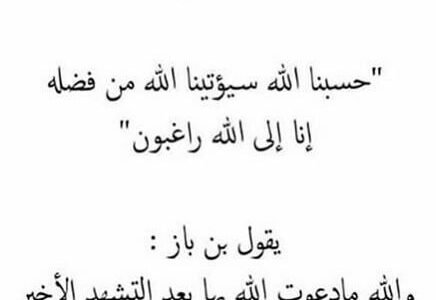 "حسبنا الله سيؤتينا الله من فضله
إنا إلى الله راغبون"
يقول بن باز :
والله مادعوت الله بها بعد التشهد الأخير